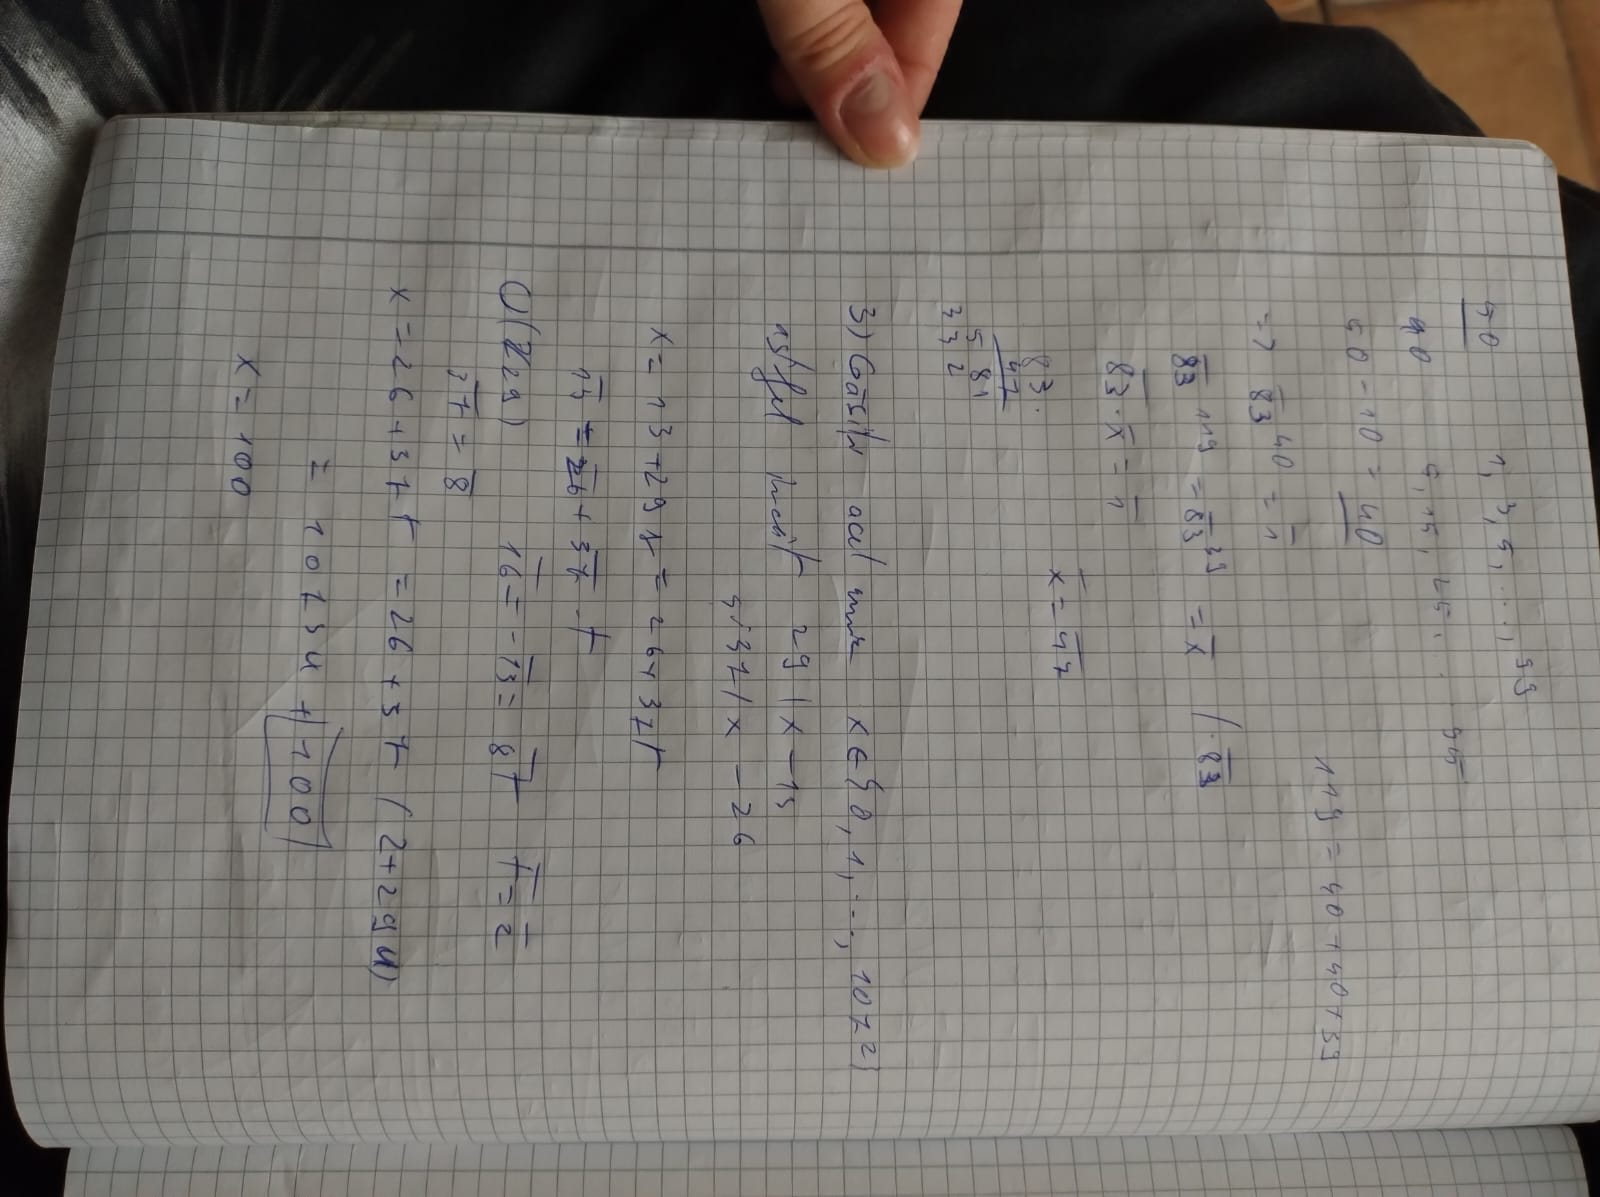 50 1, 3, 5, ..., 99
10 5, 15, 25 ... 95
50 - 10 = 40
119 = 40 + 40 + 39
=> 8̅3̅^40 = 1̅
8̅3̅^119 = 8̅3̅^39 = x̅ /· 8̅3̅
8̅3̅ · x̅ = 1̅
x̅ = 4̅7̅
83·
47
581
332
3) Găsiți acel unic x ∈ {0, 1, ..., 1072}
astfel încât 29 | x - 13
și 37 | x - 26
x = 13 + 29 = 26 + 37t
1̅3̅ = 2̅6̅ + 3̅7̅ · t̅
(Z29) 1̅6̅ = -1̅3̅ = 8̅t̅ t̅ = 2̅
3̅7̅ = 8̅
x = 26 + 37t = 26 + 37 (2 + 29u)
= 1073u + 100
x = 100